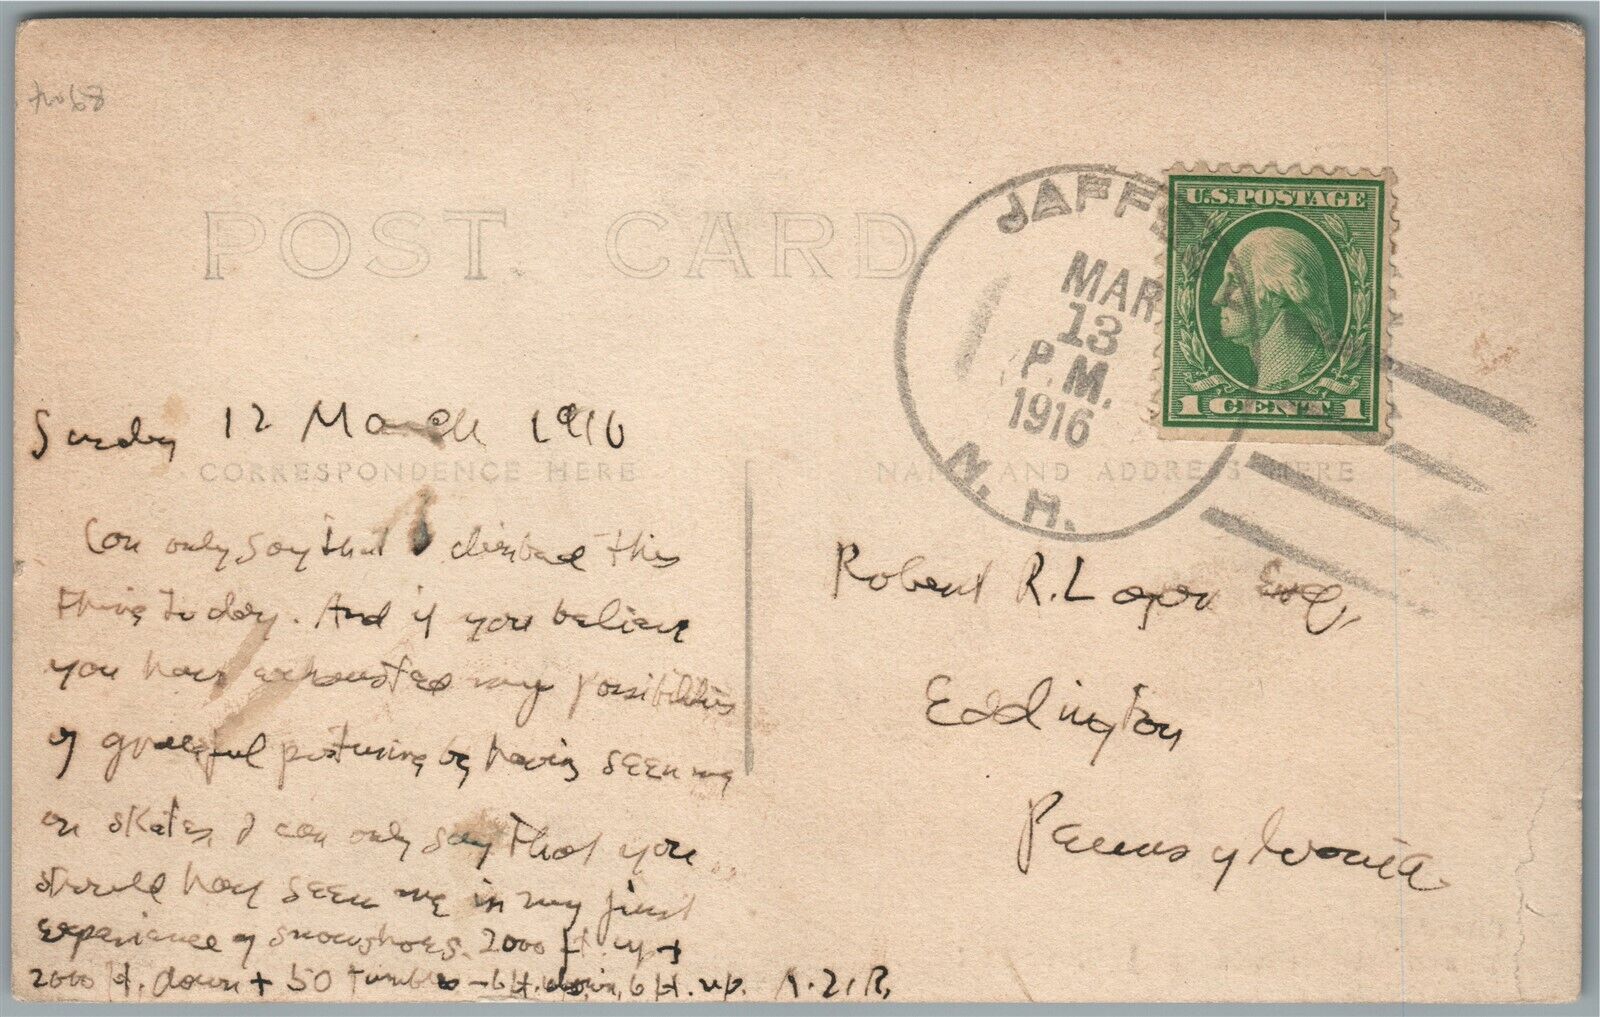 POST CARD
JAFFREY
MAR
13
P.M.
1916
N.H.
U.S. POSTAGE
1 CENT 1
Sunday 12 March 1916
CORRESPONDENCE HERE
NAME AND ADDRESS HERE
Can only say that I climbed this
thing today. And if you believe
you have exhausted my possibilities
of graceful posturing by having seen me
on skates I can only say that you
should have seen me in my first
experience of snowshoes. 2000 ft. up +
2000 ft. down + 50 tumbles - 6 ft. down, 6 ft. up.
Robert R. Logan Esq,
Eddington
Pennsylvania